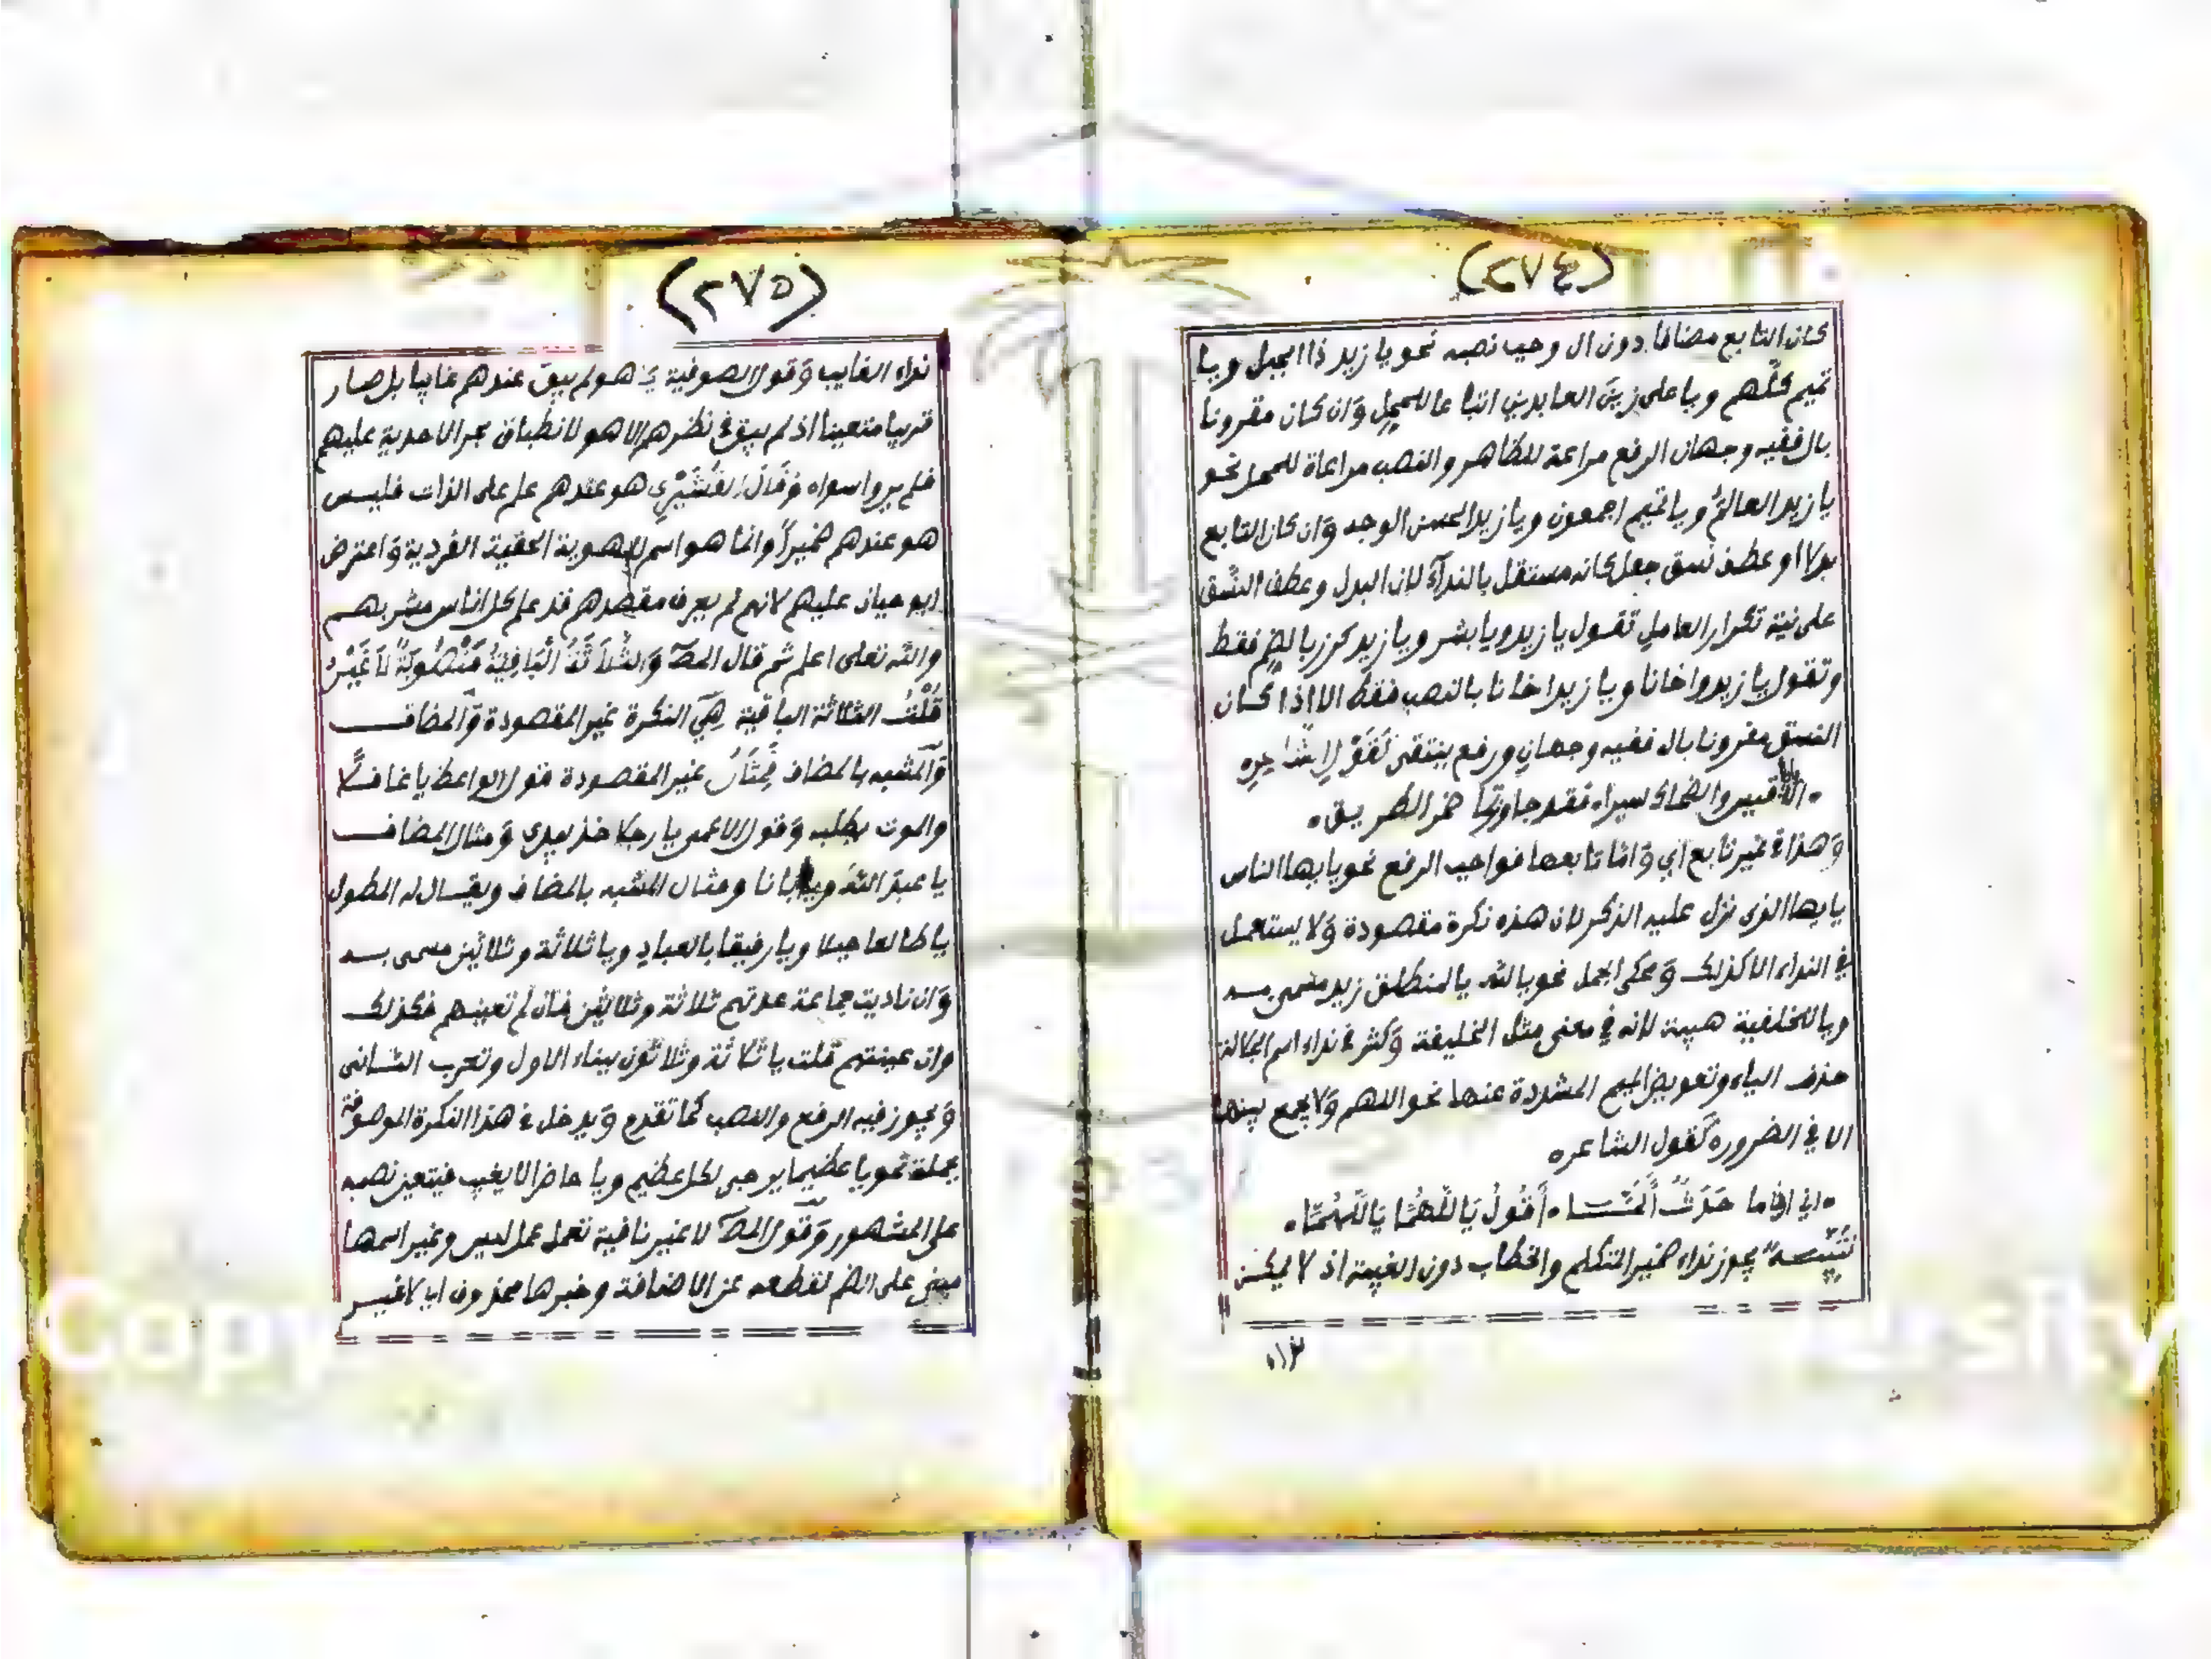 (٢٧٤)
كان التابع مضافا دون ال وجب نصبه نحو يا زيد ذا الجبل ويا
تميم كلّهم ويا على زينَ العابدين اتباعا للمحل وَان كان مقرونا
بال ففيه وجهان الرفع مراعة للظاهر والنصب مراعاة للمحل نحو
يا زيد العالمُ ويا تميم اجمعون ويا زيد الحسن الوجه وَان كان التابع
بدلا او عطف نسق جعل كانه مستقل بالندآء لان البدل وعطف النسق
على نية تكرار العامل تقول يا زيد ويا بشر ويا زيد كرز بالضم فقط
وتقول يا زيد واخانا ويا زيد اخانا بالنصب فقط الا اذا كان
النسق مقرونا بال ففيه وجهان ورفع ينتقى كَقَوْلِ الشاعر
الا يا قيس والضحاك سيرا فقد جاوزتما خمر الطريق
وَهذا فى غير تابع اي وَاما تابعها فواجب الرفع نحو يايها الناس
يايها الذى نزل عليه الذكر لان هذه نكرة مقصودة وَلا يستعمل
في النداء الا كذلك وَمحكى الجمل نحو يا لله يا لمنطلق زيد مسمى به
ويا للخليفة هيبة لانه في معنى مثل الخليفة وَكثر فى نداء اسم الجلالة
حذف الياء وتعويض الميم المشددة عنها نحو اللهم وَلا يجمع بينهما
الا فى الضروره كقول الشاعر
اني اذا ما حَدَثٌ أَلَمَّا أَقُولُ يَا اللّهُمَّا يَا اللّهُمَّا
تنبيه يجوز نداء ضمير المتكلم والخطاب دون الغيبة اذ لا يمكن
نداء
(٢٧٥)
نداء الغايب وَقول الصوفية يا هو لم يبق عندهم غايبا بل صار
قريبا متعينا اذ لم يبق فى نظرهم الا هو لانطباق بحر الاحدية عليهم
فلم يروا سواه وَقَالَ القُشَيْرِي هو عندهم علم على الذات فليس
هو عندهم ضميراً وانما هو اسم للهوية الحقية الفردية وَاعترض
ابو حيان عليهم لانه لم يعرف مقصدهم قد علم كل اناس مشربهم
والله تعلى اعلم ثم قال المصَ وَالثَّلاَثَةُ الْبَاقِيَةُ مَنْصُوبَةٌ لاَ غَيْرُ
قُلْتُ الثلاثة الباقية هِيَ النكرة غير المقصودة وَالمضاف
وَالمشبه بالمضاف فَمِثَالُ غير المقصودة قول الواعظ يا غافلًا
والموت يطلبه وَقول الاعمى يا رجلا خذ بيدى وَمثال المضاف
يا عبد الله ويا ابانا ومثال المشبه بالمضاف ويقال له المطول
يا طالعا جبلا ويا رفيقا بالعباد ويا ثلاثة وثلاثين مسمى به
وَان ناديت جماعة عدتهم ثلاثة وثلاثين فان لم تعينهم فكذلك
وان عينتهم قلت يا ثلاثة وثلاثون ببناء الاول وتعرب الثانى
وَيجوز فيه الرفع والنصب كما تقدم وَيدخل فى هذا النكرة الموصوفة
بجملة نحو يا عظيما يرجى لكل عظيم ويا حاضرا لا يغيب فيتعين نصبه
على المشهور وَقول المصَ لا غير نافية تعمل عمل ليس وغير اسمها
مبنى على الضم لقطعه عن الاضافة وخبرها محذوف اي لا غير